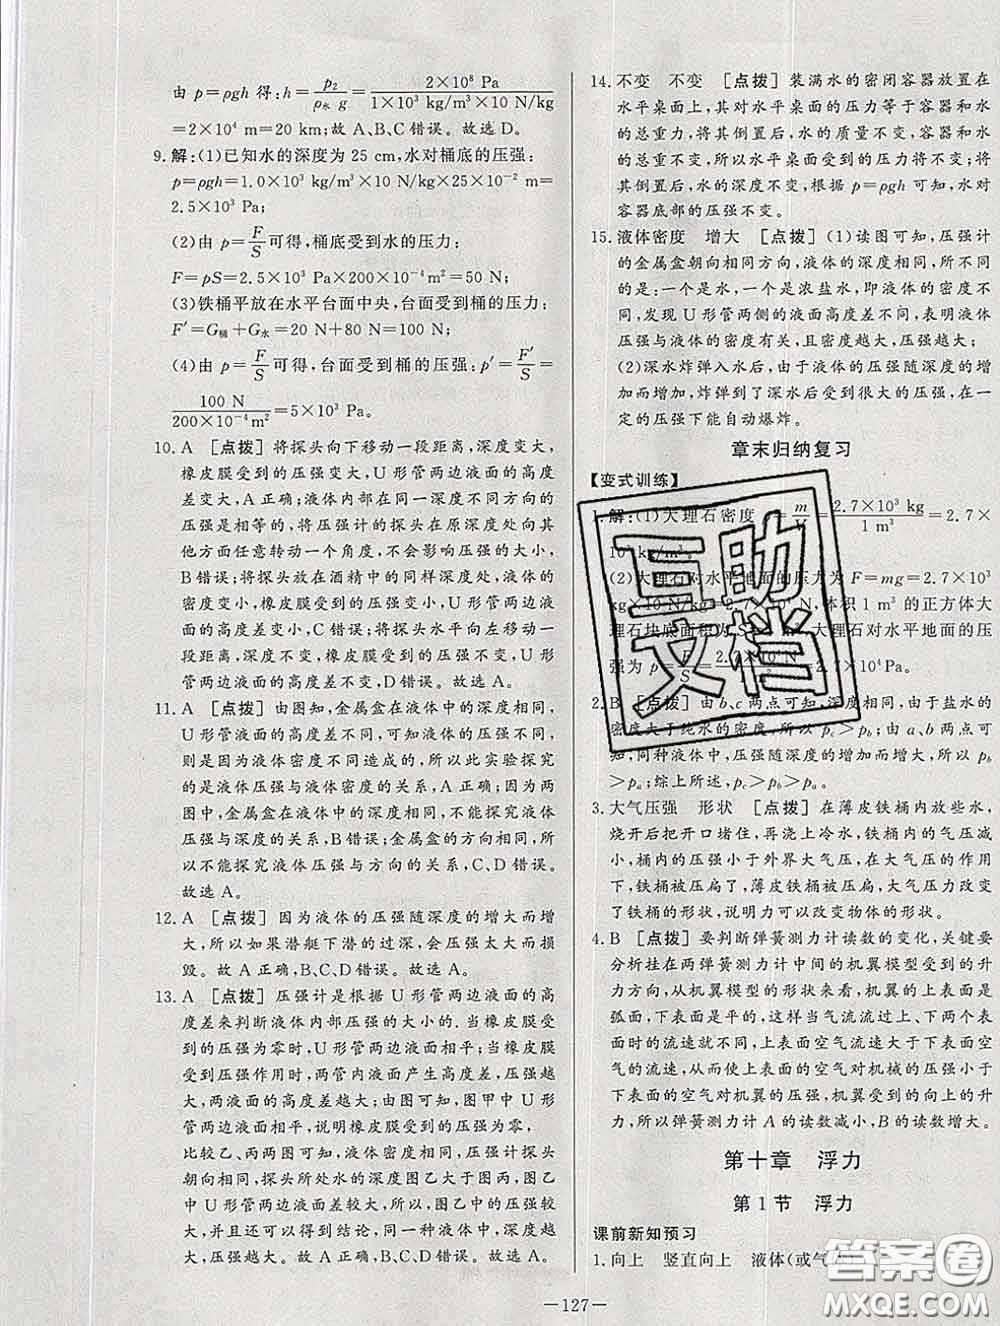 由 p=ρgh 得：h=p₂/(ρ水 g)=2×10⁸ Pa/(1×10³ kg/m³×10 N/kg)
=2×10⁴ m=20 km；故 A、B、C 错误。故选 D。
9.解：(1)已知水的深度为 25 cm，水对桶底的压强：
p=ρgh=1.0×10³ kg/m³×10 N/kg×25×10⁻² m=
2.5×10³ Pa；
(2)由 p=F/S可得，桶底受到水的压力：
F=pS=2.5×10³ Pa×200×10⁻⁴m²=50 N；
(3)铁桶平放在水平台面中央，台面受到桶的压力：
F′=G桶+G水=20 N+80 N=100 N；
(4)由 p=F/S可得，台面受到桶的压强：p′=F′/S=
100 N/(200×10⁻⁴m²)=5×10³ Pa。
10. A [点拨] 将探头向下移动一段距离，深度变大，
橡皮膜受到的压强变大，U 形管两边液面的高度
差变大，A 正确；液体内部在同一深度不同方向的
压强是相等的，将压强计的探头在原深度处向其
他方向任意转动一个角度，不会影响压强的大小，
B 错误；将探头放在酒精中的同样深度处，液体的
密度变小，橡皮膜受到的压强变小，U 形管两边液面
的高度差变小，C 错误；将探头水平向左移动一
段距离，深度不变，橡皮膜受到的压强不变，U 形
管两边液面的高度差不变，D 错误。故选 A。
11. A [点拨] 由图知，金属盒在液体中的深度相同，
U 形管液面的高度差不同，可知液体的压强不同，
则是因为液体密度不同造成的，所以此实验探究
的是液体压强与液体密度的关系，A 正确；因为两
次金属盒的深度相同，所以不能探究液体
压强与深度的关系，B 错误；金属盒的方向相同，所
以不能探究液体压强与方向的关系，C、D 错误。
故选 A。
12. A [点拨] 因为液体的压强随深度的增大而增
大，所以如果潜艇下潜的过深，会压强太大而损
毁。故 A 正确，B、C、D 错误。故选 A。
13. A [点拨] 压强计是根据 U 形管两边液面的高
度差来判断液体内部压强的大小的．当橡皮膜受
到的压强为零时，U 形管两边液面相平；当橡皮膜
受到压强作用时，两管内液面产生高度差，压强越
大，液面的高度差越大；由图可知，图甲中 U 形管
两边液面相平，说明橡皮膜受到的压强为零，
比较乙、丙两图可知，橡皮膜的方向相同，压强计
探头所处水的深度图乙大于图丙，图乙中
U 形管两边液面的高度差较大，所以图乙中的压强较
大，并且还可以得出结论，同一种液体中，深度越
大，压强越大。故 A 正确，B、C、D 错误。故选 A。
14. 不变 不变 [点拨] 装满水的密闭容器放置在
水平桌面上，其对水平桌面的压力等于容器和水
的总重力，将其倒置后，水的质量不变，容器和水
的总重力不变，所以水平桌面受到的压力将不变；将
其倒置后，水的深度不变，根据 p=ρgh 可知，水对
容器底部的压强不变。
15. 液体密度 增大 [点拨] (1)读图可知，压强计
的金属盒朝向相同方向，液体的深度相同，所不同
的是：一个是水，一个是浓盐水，即液体的密度不
同，发现 U 形管两侧的液面高度差不同，表明液体
压强与液体的密度有关，且密度越大，压强越大；
(2)深水炸弹入水后，由于液体的压强随深度的增
加而增加，炸弹到了深水后受到很大的压强，在一
定的压强下能自动爆炸。
章末归纳复习
【变式训练】
解：(1)大理石密度 =m/V=2.7×10³ kg/1 m³=2.7×
kg/m³。
(2)大理石对水平地面的压力为 F=mg=2.7×10³
体积 1 m³的正方体大
理石块底面积为 大理石对水平地面的压
强为 p=F/S= =2.7×10⁴Pa。
2. B [点拨] 由 b、c 两点可知，深度相同，由于盐水的
密度大于纯水的密度，所以 pc>pb；由 a、b两点可
知，同种液体中，压强随深度的增加而增大，所以 pb
>pa；综上所述，pc>pb>pa。
3. 大气压强 形状 [点拨] 在薄皮铁桶内放些水，
烧开后把开口堵住，再浇上冷水，铁桶内的气压减
小，桶内的压强小于外界大气压，在大气压的作用
下，铁桶被压扁了，薄皮铁桶被压扁，大气压力改变
了铁桶的形状，说明力可以改变物体的形状。
4. B [点拨] 要判断弹簧测力计读数的变化，关键要
分析挂在两弹簧测力计中间的机翼模型受到的升
力方向，从机翼模型的形状来看，机翼的上表面是
弧面，下表面是平的，这样当气流流过上、下两个表
面时的流速就不同．上表面空气流速要大于下表面空
气的流速，从而使上表面的空气对机械的压强小于
下表面的空气对机翼的压强，机翼受到的向上的升
力，所以弹簧测力计 A 的读数减小，B 的读数增大。
第十章 浮力
第 1 节 浮力
课前新知预习
1.向上 竖直向上 液体(或气
—127—
互助
文档
答案圈
MXQE.COM